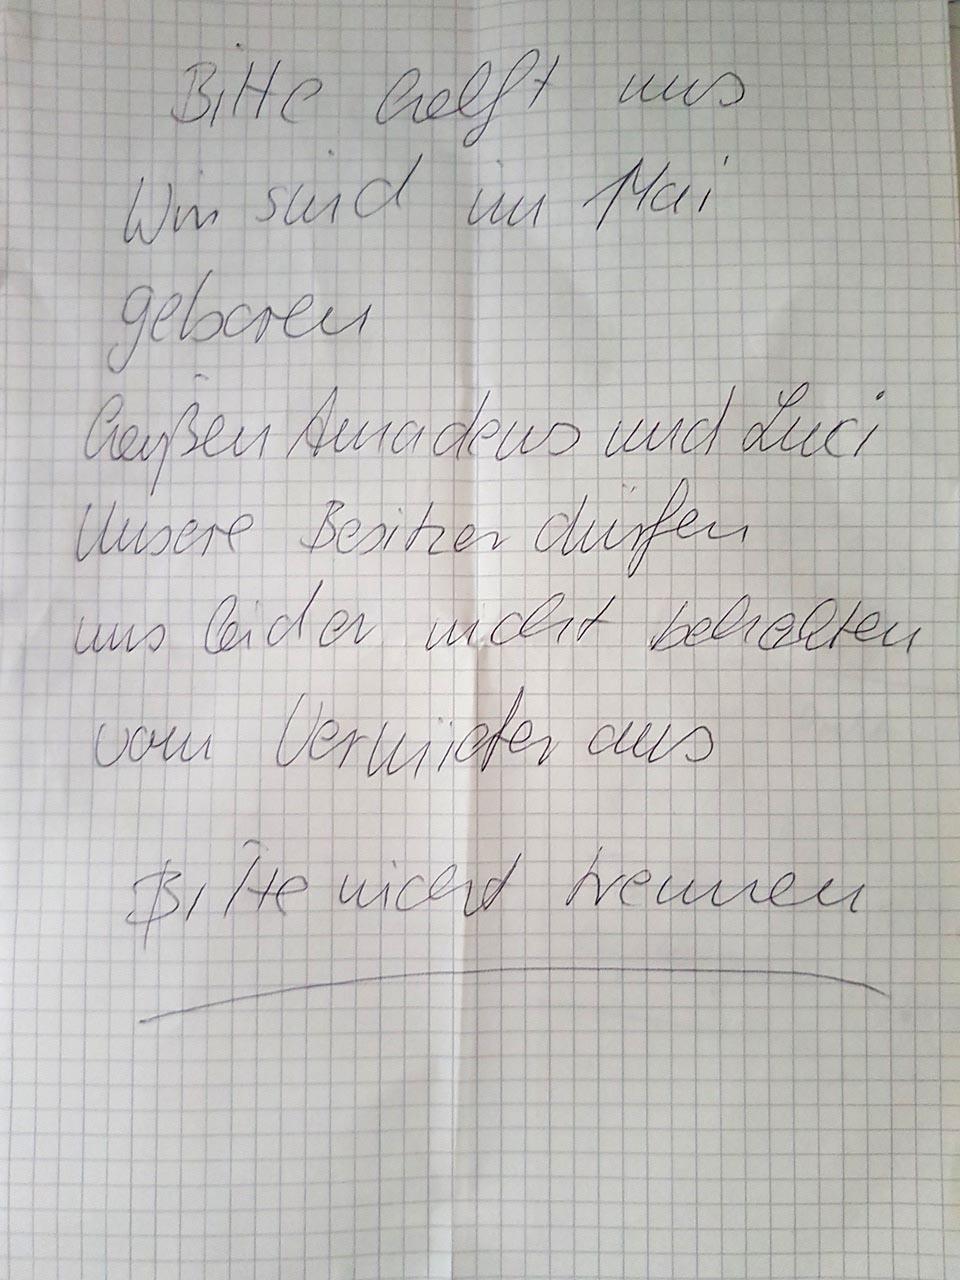 Bitte helft uns
Wir sind im Mai
geboren
heißen Amadeus und Luci
Unsere Besitzer dürfen
uns leider nicht behalten
vom Vermieter aus
Bitte nicht trennen